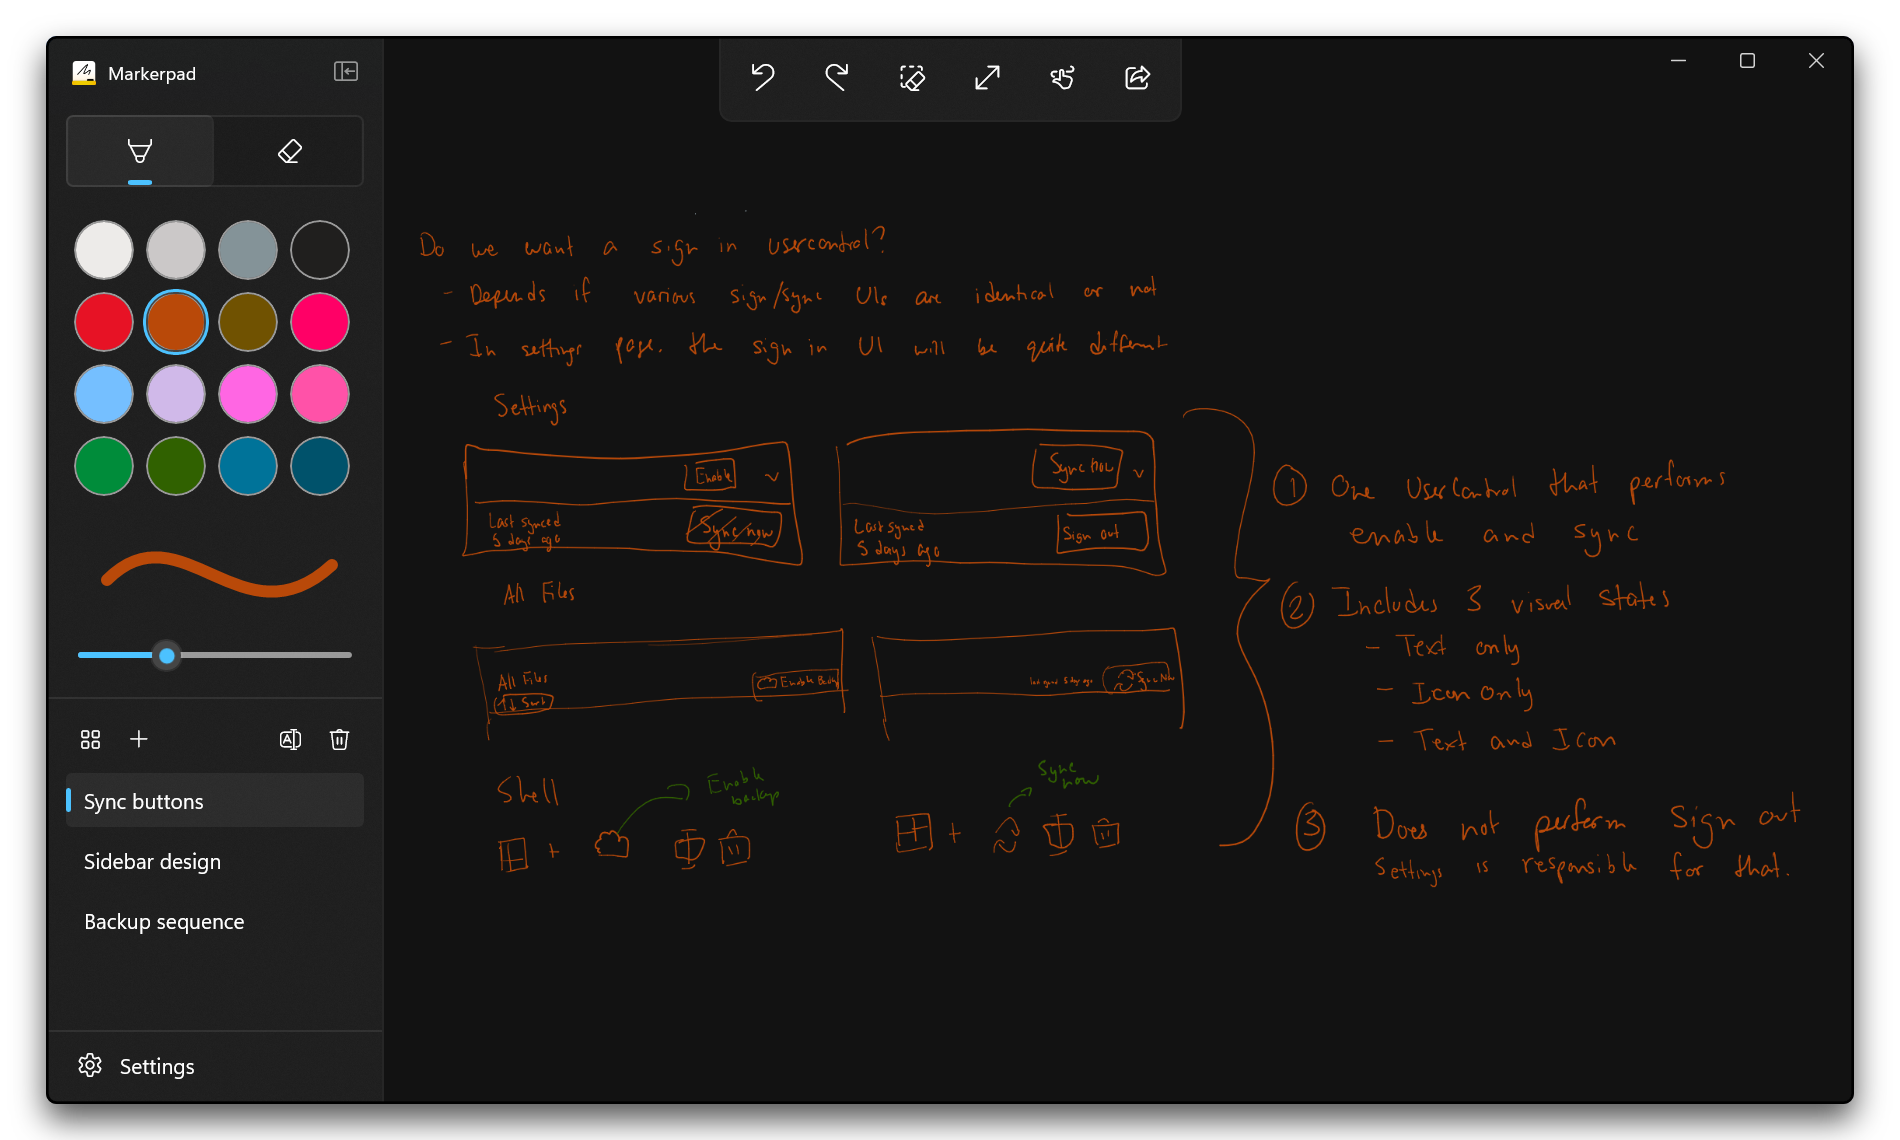 Markerpad
Sync buttons
Sidebar design
Backup sequence
Settings
Do we want a sign in usercontrol?
- Depends if various sign/sync UIs are identical or not
- In settings page. the sign in UI will be quite different
Settings
Enable
Last synced
5 days ago
Sync now
Sync now
Last synced
5 days ago
Sign out
All Files
All Files
Sort
Enable
5 day ago
Sync Now
Shell
Enable
backup
Sync
now
① One UserControl that performs
enable and sync
② Includes 3 visual states
- Text only
- Icon only
- Text and Icon
③ Does not perform Sign out
Settings is responsible for that.